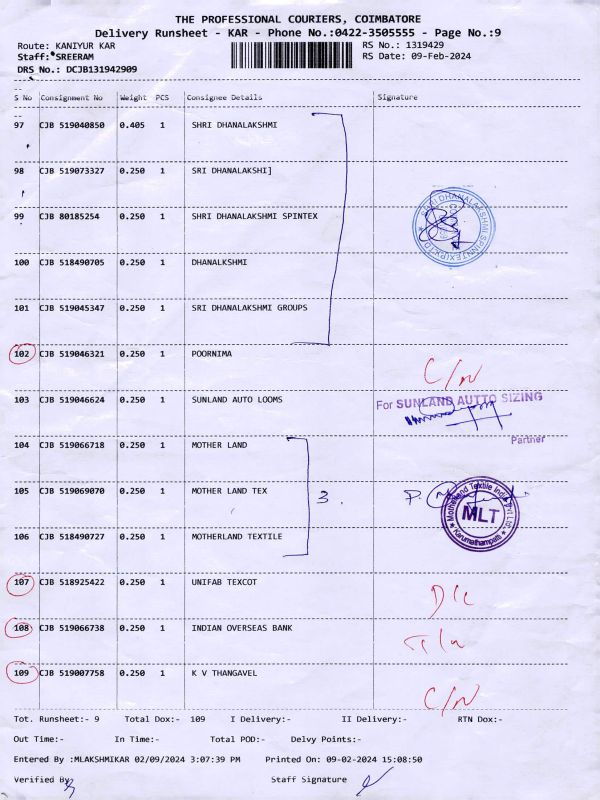 THE PROFESSIONAL COURIERS, COIMBATORE
Delivery Runsheet - KAR - Phone No.:0422-3505555 - Page No.:9
Route: KANIYUR KAR RS No.: 1319429
Staff: SREERAM RS Date: 09-Feb-2024
DRS No.: DCJB131942909
S No Consignment No Weight PCS Consignee Details Signature
97 CJB 519040850 0.405 1 SHRI DHANALAKSHMI
98 CJB 519073327 0.250 1 SRI DHANALAKSHI]
99 CJB 80185254 0.250 1 SHRI DHANALAKSHMI SPINTEX
SHRI DHANALAKSHMI SPINTEX (P) LTD
100 CJB 518490705 0.250 1 DHANALKSHMI
101 CJB 519045347 0.250 1 SRI DHANALAKSHMI GROUPS
102 CJB 519046321 0.250 1 POORNIMA C/N
103 CJB 519046624 0.250 1 SUNLAND AUTO LOOMS For SUNLAND AUTTO SIZING
Partner
104 CJB 519066718 0.250 1 MOTHER LAND
105 CJB 519069070 0.250 1 MOTHER LAND TEX 3.
Motherland Textile India Pvt Ltd
MLT
Karumathampatti
106 CJB 518490727 0.250 1 MOTHERLAND TEXTILE
107 CJB 518925422 0.250 1 UNIFAB TEXCOT
108 CJB 519066738 0.250 1 INDIAN OVERSEAS BANK
109 CJB 519007758 0.250 1 K V THANGAVEL C/N
Tot. Runsheet:- 9 Total Dox:- 109 I Delivery:- II Delivery:- RTN Dox:-
Out Time:- In Time:- Total POD:- Delvy Points:-
Entered By :MLAKSHMIKAR 02/09/2024 3:07:39 PM Printed On: 09-02-2024 15:08:50
Verified By Staff Signature